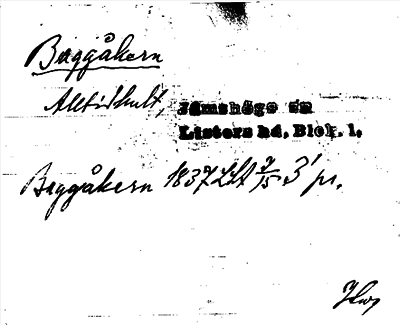 Baggåkern
Alltidhult, Jämshögs sn
Listers hd, Blek. l.
Baggåkern 1837 LSA 9/15 3' pr.